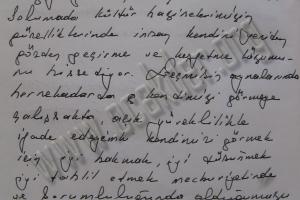 Solumada kültür hazinelerimizin
güzelliklerinde insan kendini yeniden
gözden geçirme ve keşfetme
hissediyor. Geçmişin aynalarında
her nekadarda kendimizi görmeye
çalışsakta, açık yüreklilikle
ifade edeyimki kendimizi görmek
için iyi bakmak, iyi düşünmek
iyi tahlil etmek mecburiyetinde
ve sorumluluğunda olduğumuzu